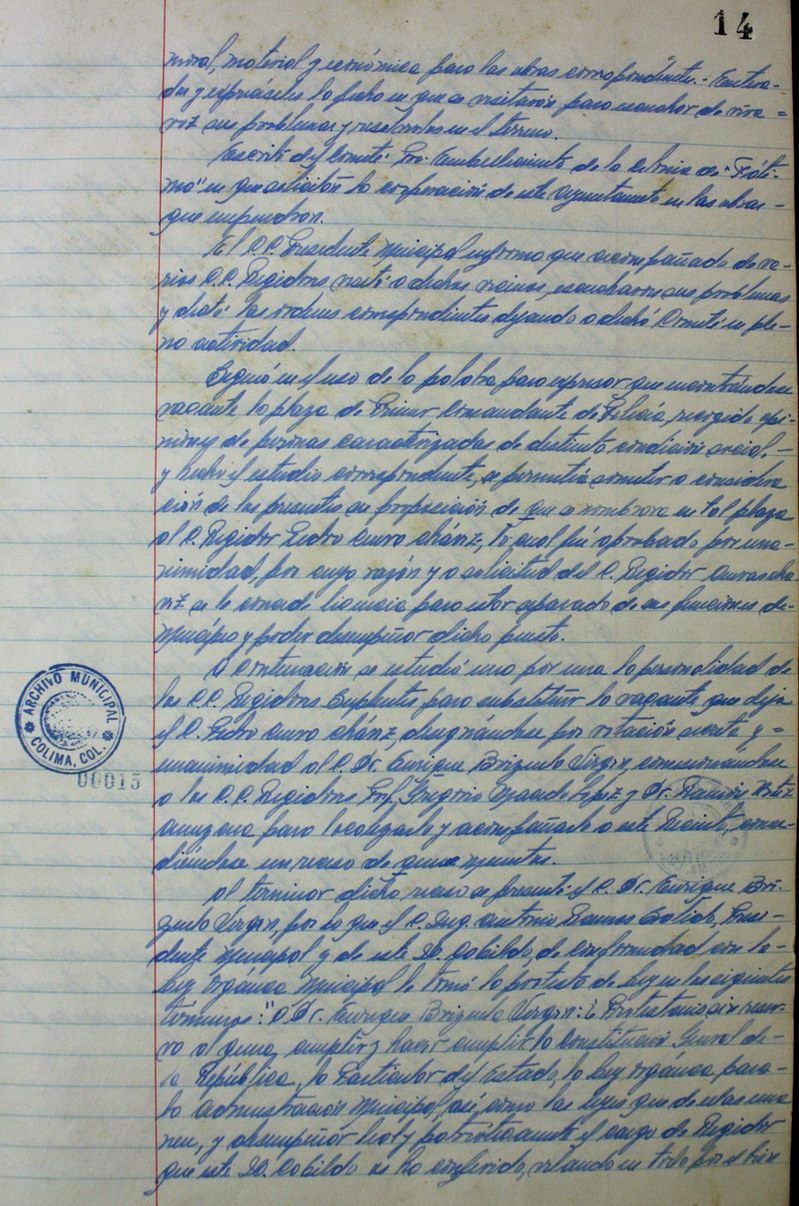 14
moral, material y económica para las obras correspondientes.- Entera-
dos y expresándoles la fecha en que se visitarán para escuchar de viva =
voz sus problemas y resolverlos en el terreno.
Escrito del Comité Pro. Embellecimiento de la Colonia de "Fáti-
ma" en que solicitan la cooperación de este Ayuntamiento en las obras -
que emprendran.
El C. Presidente Municipal informa que acompañado de va-
rios C.C. Regidores visitó a dichos vecinos, escucharon sus problemas
y dictó las ordenes correspondientes dejando a dicho Comité en ple-
na actividad.
Siguió en el uso de la palabra para expresar que encontrándose
vacante la plaza de Primer Comandante de Policía, recogido opi-
niones de personas caracterizadas de distinta condición social, -
y hecho el estudio correspondiente, se permitía someter a considera
ción de los presentes su proposición de que se nombrara en tal plaza
al C. Regidor Pedro Chánz, lo cual fué aprobado por una-
nimidad, por cuya razón y a solicitud del C. Regidor
se le concede licencia para estar separado de sus funciones de-
Munícipe y poder desempeñar dicho puesto.
A continuación se estudió una por una la personalidad de
los C.C. Regidores Suplentes para substituir la vacante que deja
el C. Pedro Chánz, designándose por votación secreta y =
unanimidad al C. Dr. Enrique Brizuela Virgen, comisionandose
a los C.C. Regidores Prof. Gregorio Macedo López y Dr. Ramón
para localizarlo y acompañarlo a este Recinto, conce-
diéndose un receso de quince minutos.
Al terminar dicho receso se presentó el C. Dr. Enrique Bri-
zuela Virgen, por lo que el C. Ing. Antonio Ramos Presi-
dente Municipal y de este H. Cabildo, de conformidad con la-
Ley Orgánica Municipal le tomó la protesta de Ley en los siguientes
términos: "C. Dr. Enrique Brizuela Virgen: ¿Protesta sin reser-
va alguna, cumplir y hacer cumplir la Constitución General de-
la República, la Particular del Estado, la Ley orgánica para-
la Administración Municipal, así como las leyes que de ellas ema
nen, y desempeñar leal y patrióticamente el cargo de Regidor
que este H. Cabildo os ha conferido, velando en todo por el bien
ARCHIVO MUNICIPAL
COLIMA, COL.
00015